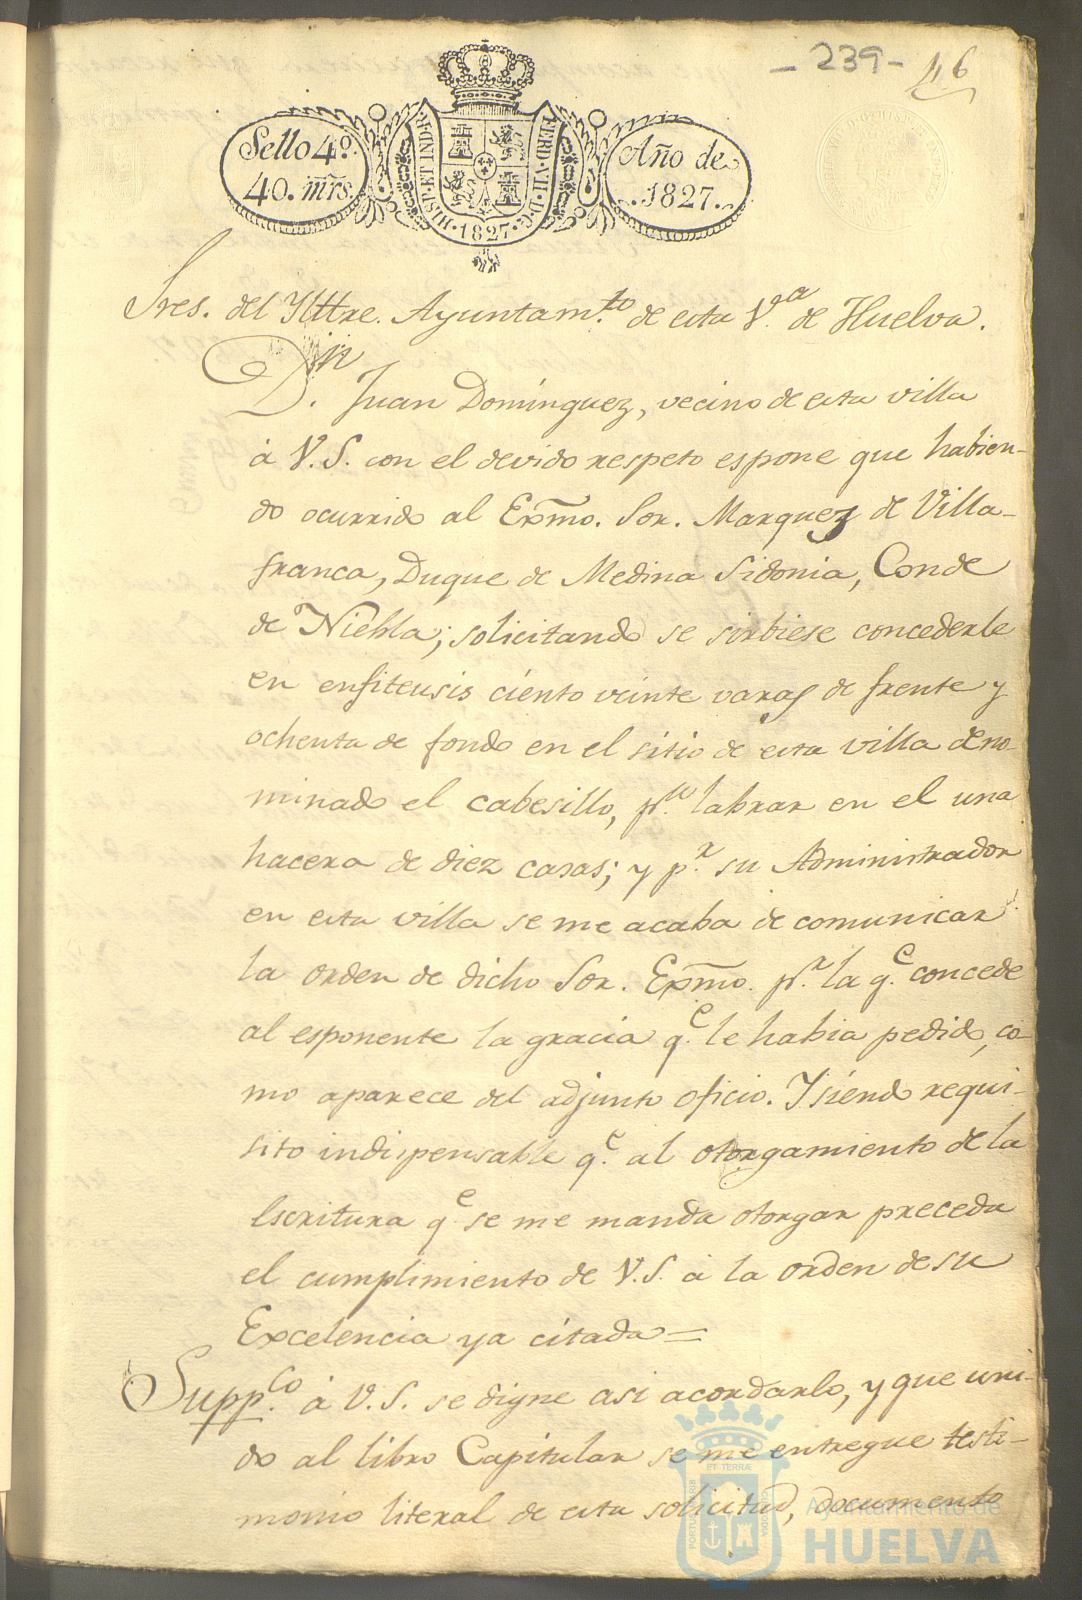 - 239 - 46
Sello 4º. 40. mrs.
HISP. ET IND. R. FERD. VII. D. G. 1827.
Año de 1827.
Sres. del Ylltre. Ayuntam.to de esta V.a de Huelva.
D.n Juan Domínguez, vecino de esta villa
á V.S. con el devido respeto espone que habien-
do ocurrido al Exmo. Sor. Marquez de Villa-
franca, Duque de Medina Sidonia, Conde
de Niebla; solicitando se sirbiese concederle
en enfiteusis ciento veinte varas de frente y
ochenta de fondo en el sitio de esta villa deno-
minado el cabesillo, p.a labrar en el una
hacera de diez casas; y p.r su Administrador
en esta villa se me acaba de comunicar
la orden de dicho Sor. Exmo. p.r la q.e concede
al esponente la gracia q.e le habia pedido, co-
mo aparece del adjunto oficio. Y siendo requi-
sito indispensable q.e al otorgamiento de la
Escritura q.e se me manda otorgar preceda
el cumplimiento de V.S. á la orden de su
Excelencia ya citada =
Supp.co á V.S. se digne asi acordarlo, y que uni-
do al libro Capitular se me entregue testi-
monio literal de esta solicitud, documento
PORTUS MARIS ET TERRÆ CUSTODIA
Ayuntamiento de
HUELVA